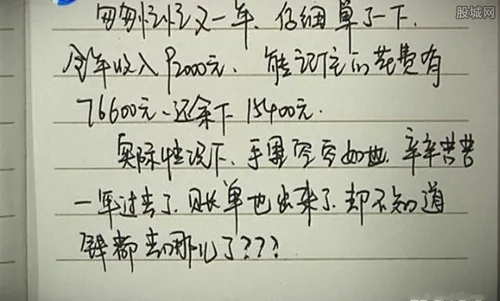 股城网
匆匆忙忙又一年、仔细算了一下、
全年收入92000元、能记住的花费有
76600元、还余下 15400元.
实际情况下、手里空空如也、辛辛苦苦
一年过去了、账单也出来了、却不知道
钱都去哪儿了???